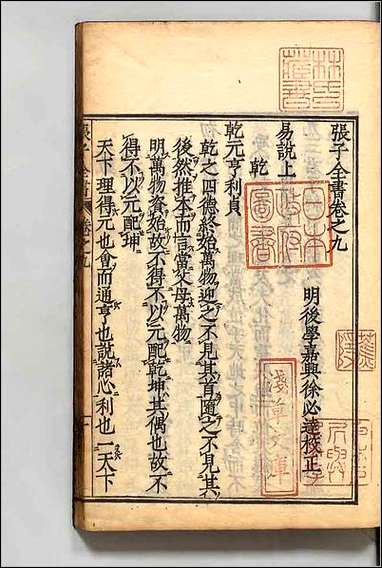 張子全書卷之九
明後學嘉興徐必達校正
易說上
乾
乾元亨利貞
乾之四德終始萬物迎之不見其首隨之不見其
後然推本而言當父母萬物
明萬物資始故不得不以元配乾坤其偶也故不
得不以元配坤
天下理得元也會而通亨也說諸心利也一天下
張子全書
卷之九
林氏藏書
日本政府圖書
淺草文庫